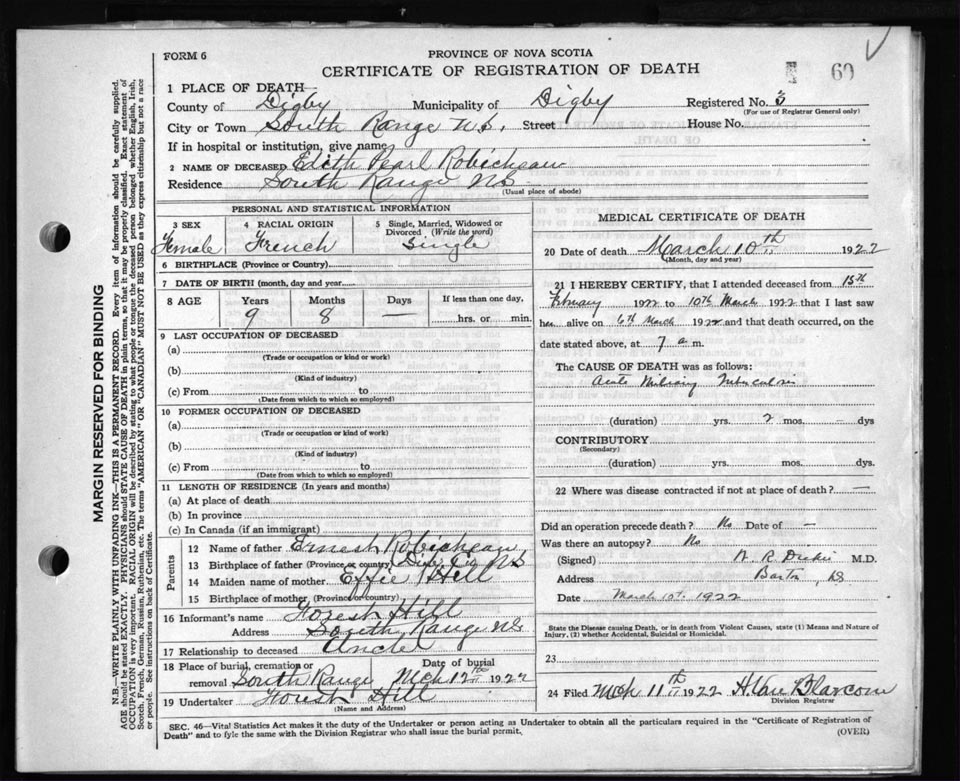 60
FORM 6
PROVINCE OF NOVA SCOTIA
CERTIFICATE OF REGISTRATION OF DEATH
1 PLACE OF DEATH
County of Digby Municipality of Digby Registered No. 3
(For use of Registrar General only)
City or Town South Range N.S. Street House No.
If in hospital or institution, give name
2 NAME OF DECEASED Edith Pearl Robicheau
Residence South Range NS
(Usual place of abode)
PERSONAL AND STATISTICAL INFORMATION
3 SEX Female
4 RACIAL ORIGIN French
5 Single, Married, Widowed or Divorced (Write the word) Single
6 BIRTHPLACE (Province or Country)
7 DATE OF BIRTH (month, day and year)
8 AGE Years 9 Months 8 Days — If less than one day, hrs. or min.
9 LAST OCCUPATION OF DECEASED
(a)
(Trade or occupation or kind of work)
(b)
(Kind of industry)
(c) From to
(Date from which to which so employed)
10 FORMER OCCUPATION OF DECEASED
(a)
(Trade or occupation or kind of work)
(b)
(Kind of industry)
(c) From to
(Date from which to which so employed)
11 LENGTH OF RESIDENCE (In years and months)
(a) At place of death
(b) In province
(c) In Canada (if an immigrant)
Parents
12 Name of father Ernest Robicheau
13 Birthplace of father (Province or country) Digby Co NS
14 Maiden name of mother Effie Hill
15 Birthplace of mother (Province or country)
16 Informant's name Forest Hill
Address South Range NS
17 Relationship to deceased Uncle
18 Place of burial, cremation or removal South Range Date of burial Mch 12th 1922
19 Undertaker Forest Hill
(Name and Address)
MEDICAL CERTIFICATE OF DEATH
20 Date of death March 10th 1922
(Month, day and year)
21 I HEREBY CERTIFY, that I attended deceased from 15th
February 1922 to 10th March 1922 that I last saw
her alive on 6th March 1922 and that death occurred, on
date stated above, at 7 a m.
The CAUSE OF DEATH was as follows:
Acute Miliary Tuberculosis
(duration) yrs. 2 mos. — dys
CONTRIBUTORY
(Secondary)
(duration) yrs. mos. dys.
22 Where was disease contracted if not at place of death? —
Did an operation precede death? No Date of —
Was there an autopsy? No
(Signed) R. M.D.
Address Barton, NS
Date March 10th 1922
State the Disease causing Death, or in death from Violent Causes, state (1) Means and Nature of
Injury, (2) whether Accidental, Suicidal or Homicidal.
23
24 Filed Mch 11th 1922 H. Van Blarcom
Division Registrar
SEC. 46—Vital Statistics Act makes it the duty of the Undertaker or person acting as Undertaker to obtain all the particulars required in the "Certificate of Registration of
Death" and to fyle the same with the Division Registrar who shall issue the burial permit.
(OVER)
MARGIN RESERVED FOR BINDING
N.B.—WRITE PLAINLY WITH UNFADING INK—THIS IS A PERMANENT RECORD. Every item of information should be carefully supplied.
AGE should be stated EXACTLY. PHYSICIANS should STATE CAUSE OF DEATH in plain terms, so that it may be properly classified. Exact statement of
OCCUPATION is very important. RACIAL ORIGIN will be described by stating to what people or tongue the deceased person belonged whether English, Irish,
Scotch, French, German, Russian, Ruthenian, etc. The terms "AMERICAN" OR "CANADIAN" MUST NOT BE USED as they express citizenship but not a race
or people. See instructions on back of Certificate.